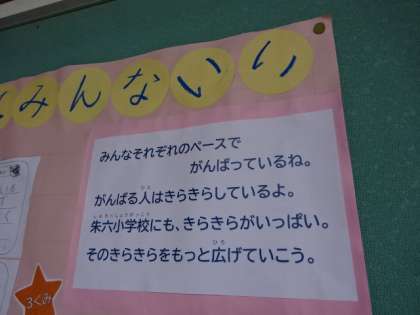 みんないい
みんなそれぞれのペースで
がんばっているね。
がんばる人はきらきらしているよ。
朱六小学校にも、きらきらがいっぱい。
そのきらきらをもっと広げていこう。
3くみ